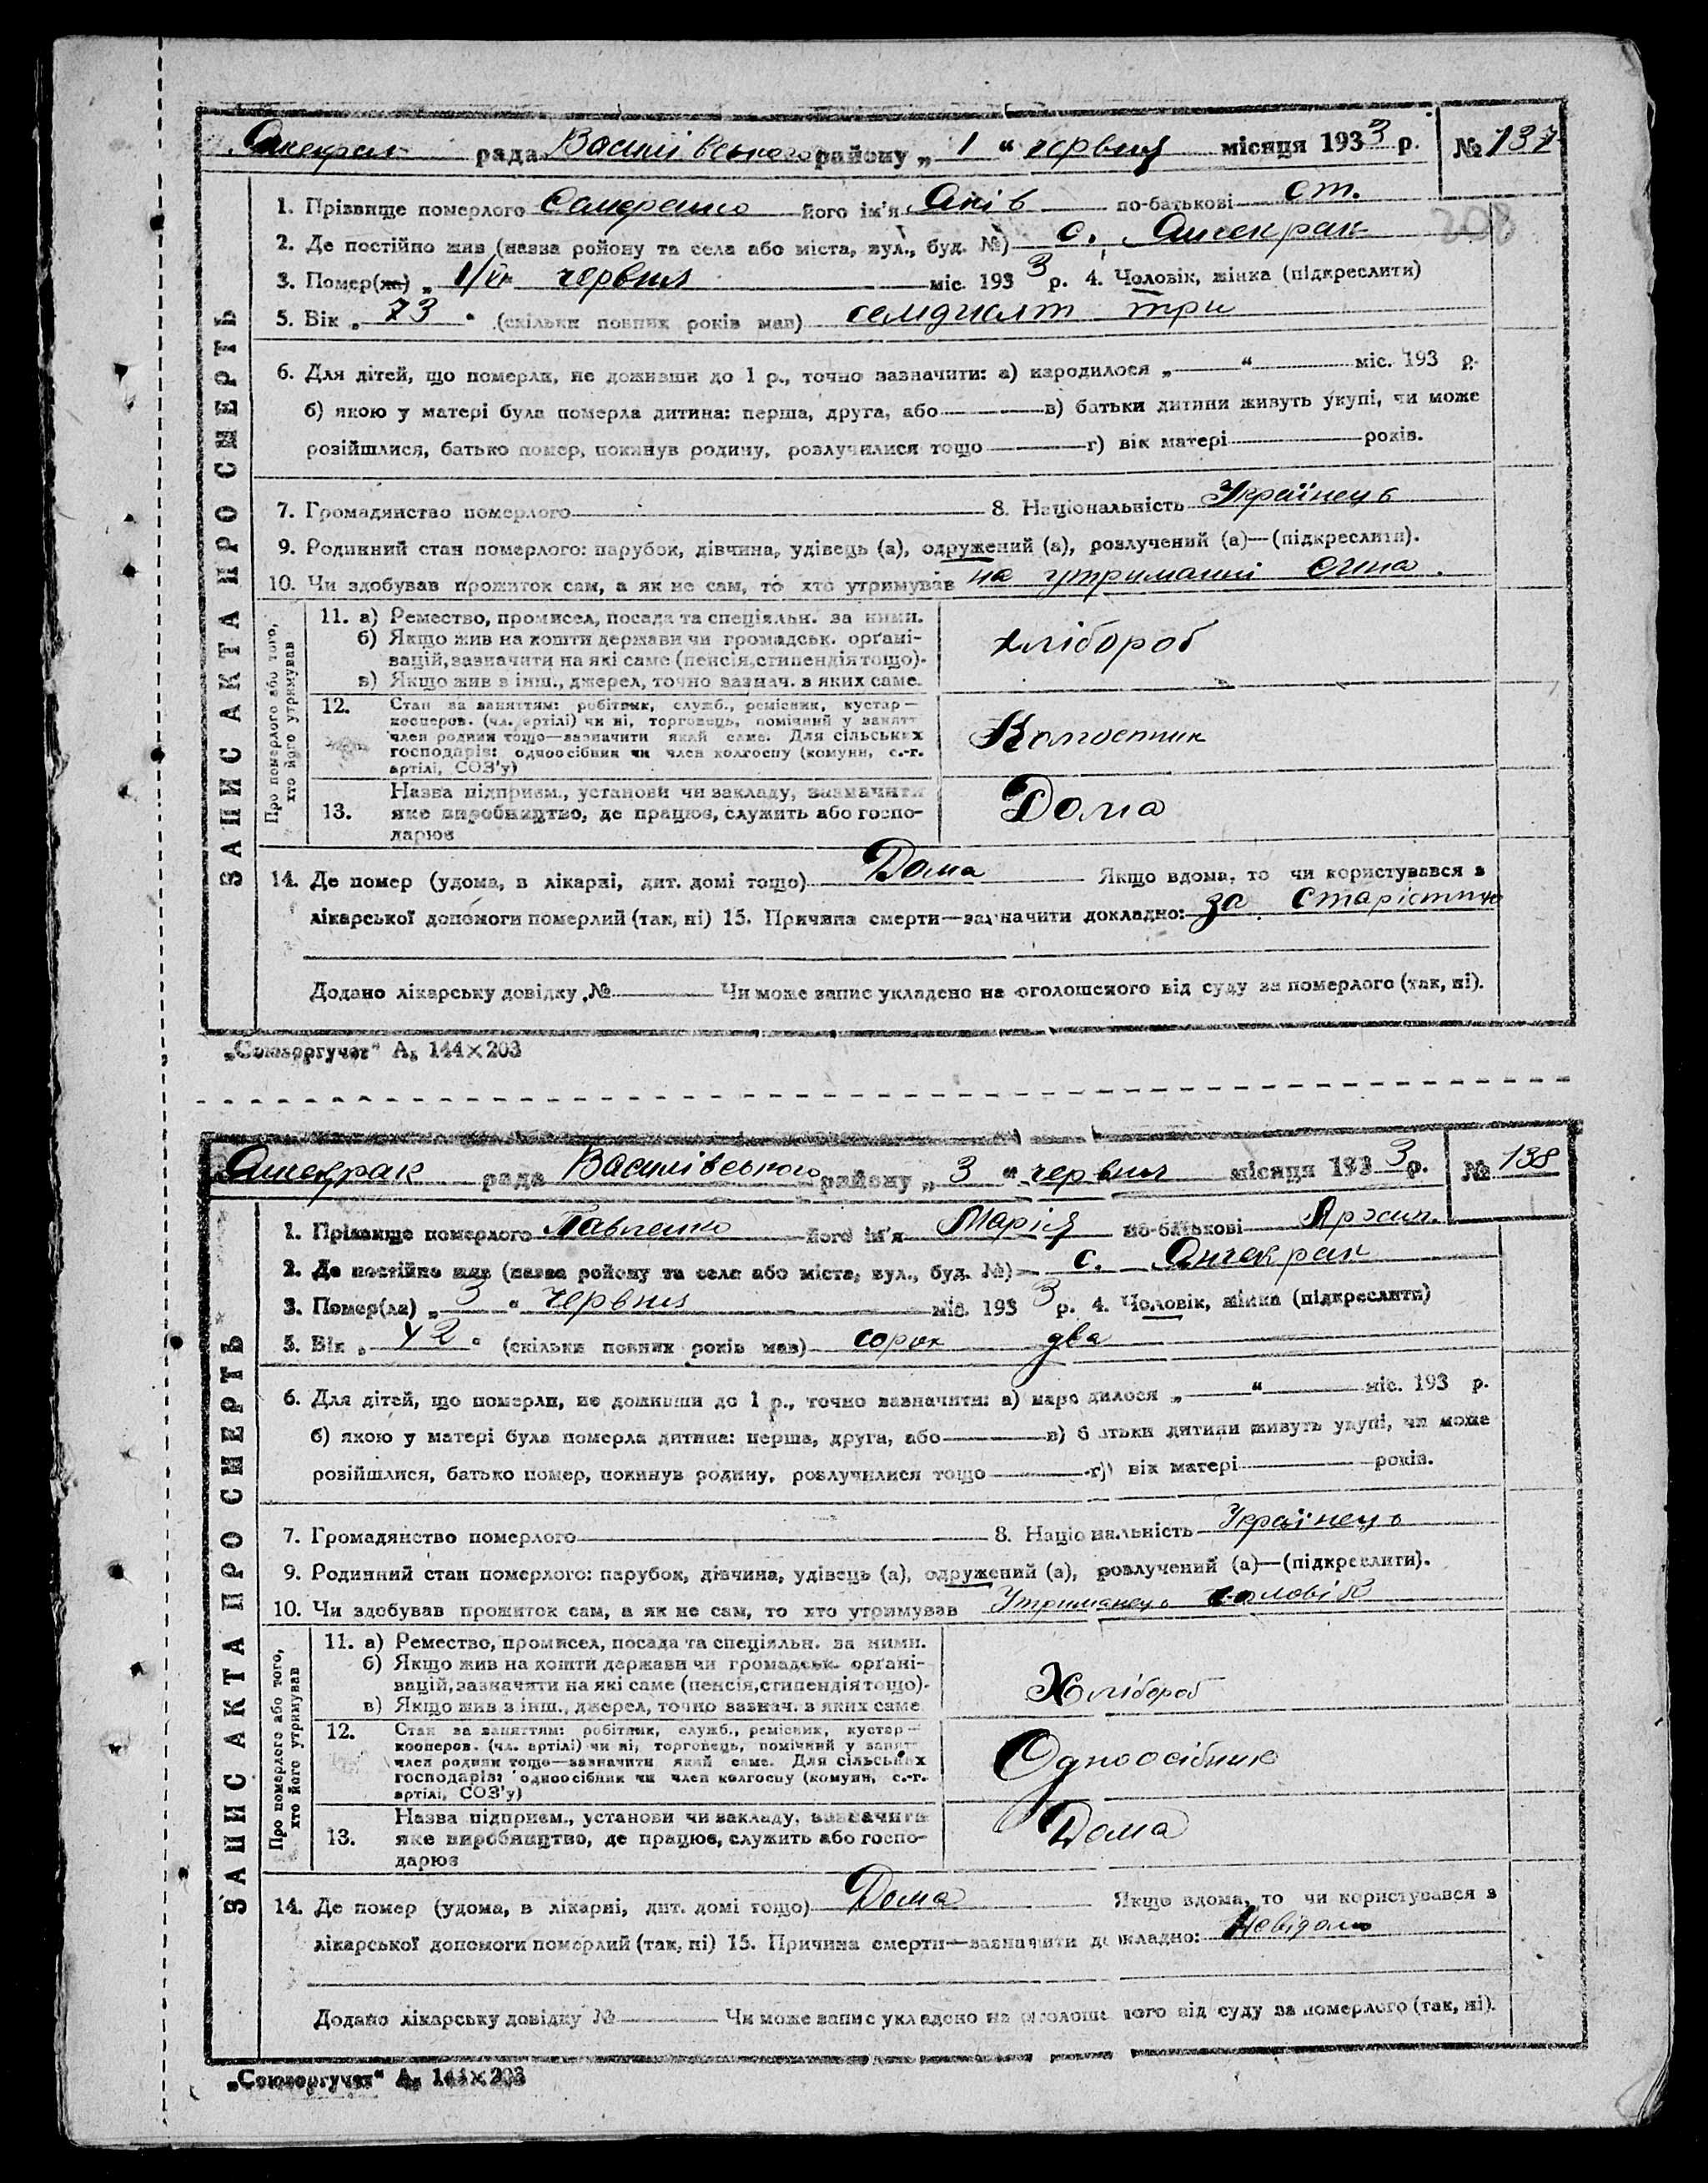 рада Василівського району „ 1 “ червня місяця 1933 р. № 137
208
1. Прізвище померлого його ім'я Яків по-батькові Ст.
2. Де постійно жив (назваройону та села або міста, вул., буд. №) с. Янчекрак
3. Помер(ла) „ 1/VI червня міс. 1933 р. 4. Чоловік, жінка (підкреслити)
5. Вік „ 73 “ (скільки повних років мав) семдисят три
6. Для дітей, що померли, не доживши до 1 р., точно зазначити: а) народилося „ “ міс. 193 р.
б) якою у матері була померла дитина: перша, друга, або в) батьки дитини живуть укупі, чи може
розійшлися, батько помер, покинув родину, розлучилися тощо г) вік матері років.
7. Громадянство померлого 8. Національність Українець
9. Родинний стан померлого: парубок, дівчина, удівець (а), одружений (а), розлучений (а)—(підкреслити).
10. Чи здобував прожиток сам, а як не сам, то хто утримував на утриманні сина.
ЗАПИС АКТА ПРО СМЕРТЬ
Про померлого або того,
хто його утримував
11. а) Ремество, промисел, посада та спеціяльн. за ними.
б) Якщо жив на кошти держави чи громадськ. органі-
зацій, зазначити на які саме (пенсія, стипендія тощо).
в) Якщо жив з інш., джерел, точно зазнач. з яких саме.
хлібороб
12. Стан за заняттям: робітник, служб., ремісник, кустар—
кооперов. (чл. артілі) чи ні, торговець, помічний у занятт
член родини тощо—зазначити який саме. Для сільських
господарів: одноосібник чи член колгоспу (комуни, с.-г.
артілі, СОЗ'у)
Колгоспник
13. Назва підприєм., установи чи закладу, зазначити
яке виробництво, де працює, служить або госпо-
дарює
Дома
14. Де помер (удома, в лікарні, дит. домі тощо) Дома Якщо вдома, то чи користувався з
лікарської допомоги померлий (так, ні) 15. Причина смерти—зазначити докладно: за старістю
Додано лікарську довідку № Чи може запис укладено на оголошеного від суду за померлого (так, ні).
„Союзоргучет“ А₅ 144×203
Янчекрак рада Василівського району „ 3 “ червня місяця 1933 р. № 138
1. Прізвище померлого Павленко його ім'я Марія по-батькові
2. Де постійно жив (назва ройону та села або міста, вул., буд. №) с. Янчекрак
3. Помер(ла) „ 3 “ червня міс. 1933 р. 4. Чоловік, жінка (підкреслити)
5. Вік „ 42 “ (скільки повних років мав) сорок два
6. Для дітей, що померли, не доживши до 1 р., точно зазначити: а) народилося „ “ міс. 193 р.
б) якою у матері була померла дитина: перша, друга, або в) батьки дитини живуть укупі, чи може
розійшлися, батько помер, покинув родину, розлучилися тощо г) вік матері років.
7. Громадянство померлого 8. Національність Українець
9. Родинний стан померлого: парубок, дівчина, удівець (а), одружений (а), розлучений (а)—(підкреслити).
10. Чи здобував прожиток сам, а як не сам, то хто утримував Утриманець чоловік
ЗАПИС АКТА ПРО СМЕРТЬ
Про померлого або того,
хто його утримував
11. а) Ремество, промисел, посада та спеціяльн. за ними.
б) Якщо жив на кошти держави чи громадськ. органі-
зацій, зазначити на які саме (пенсія, стипендія тощо).
в) Якщо жив з інш., джерел, точно зазнач. з яких саме
Хлібороб
12. Стан за заняттям: робітник, служб., ремісник, кустар—
кооперов. (чл. артілі) чи ні, торговець, помічний у занятт
член родини тощо—зазначити який саме. Для сільських
господарів: одноосібник чи член колгоспу (комуни, с.-г.
артілі, СОЗ'у)
Одноосібник
13. Назва підприєм., установи чи закладу, зазначити
яке виробництво, де працює, служить або госпо-
дарює
Дома
14. Де помер (удома, в лікарні, дит. домі тощо) Дома Якщо вдома, то чи користувався з
лікарської допомоги померлий (так, ні) 15. Причина смерти—зазначити докладно: Невідомо
Додано лікарську довідку № Чи може запис укладено на оголошеного від суду за померлого (так, ні).
„Союзоргучет“ А₅ 144×203